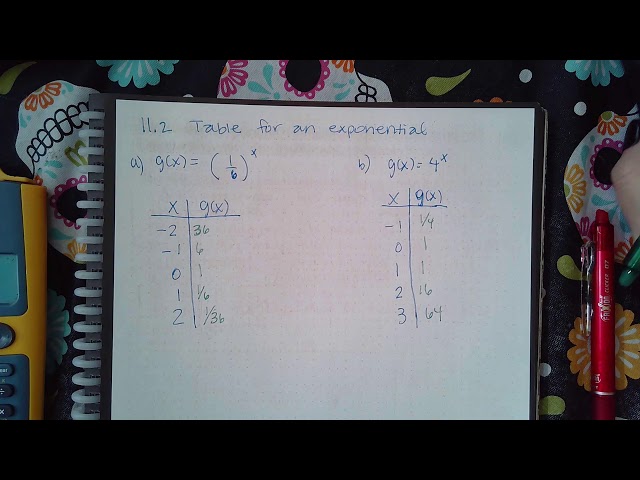 11.2 Table for an exponential
a) g(x) = (1/6)^x
x g(x)
-2 36
-1 6
0 1
1 1/6
2 1/36
b) g(x) = 4^x
x g(x)
-1 1/4
0 1
1 1
2 16
3 64